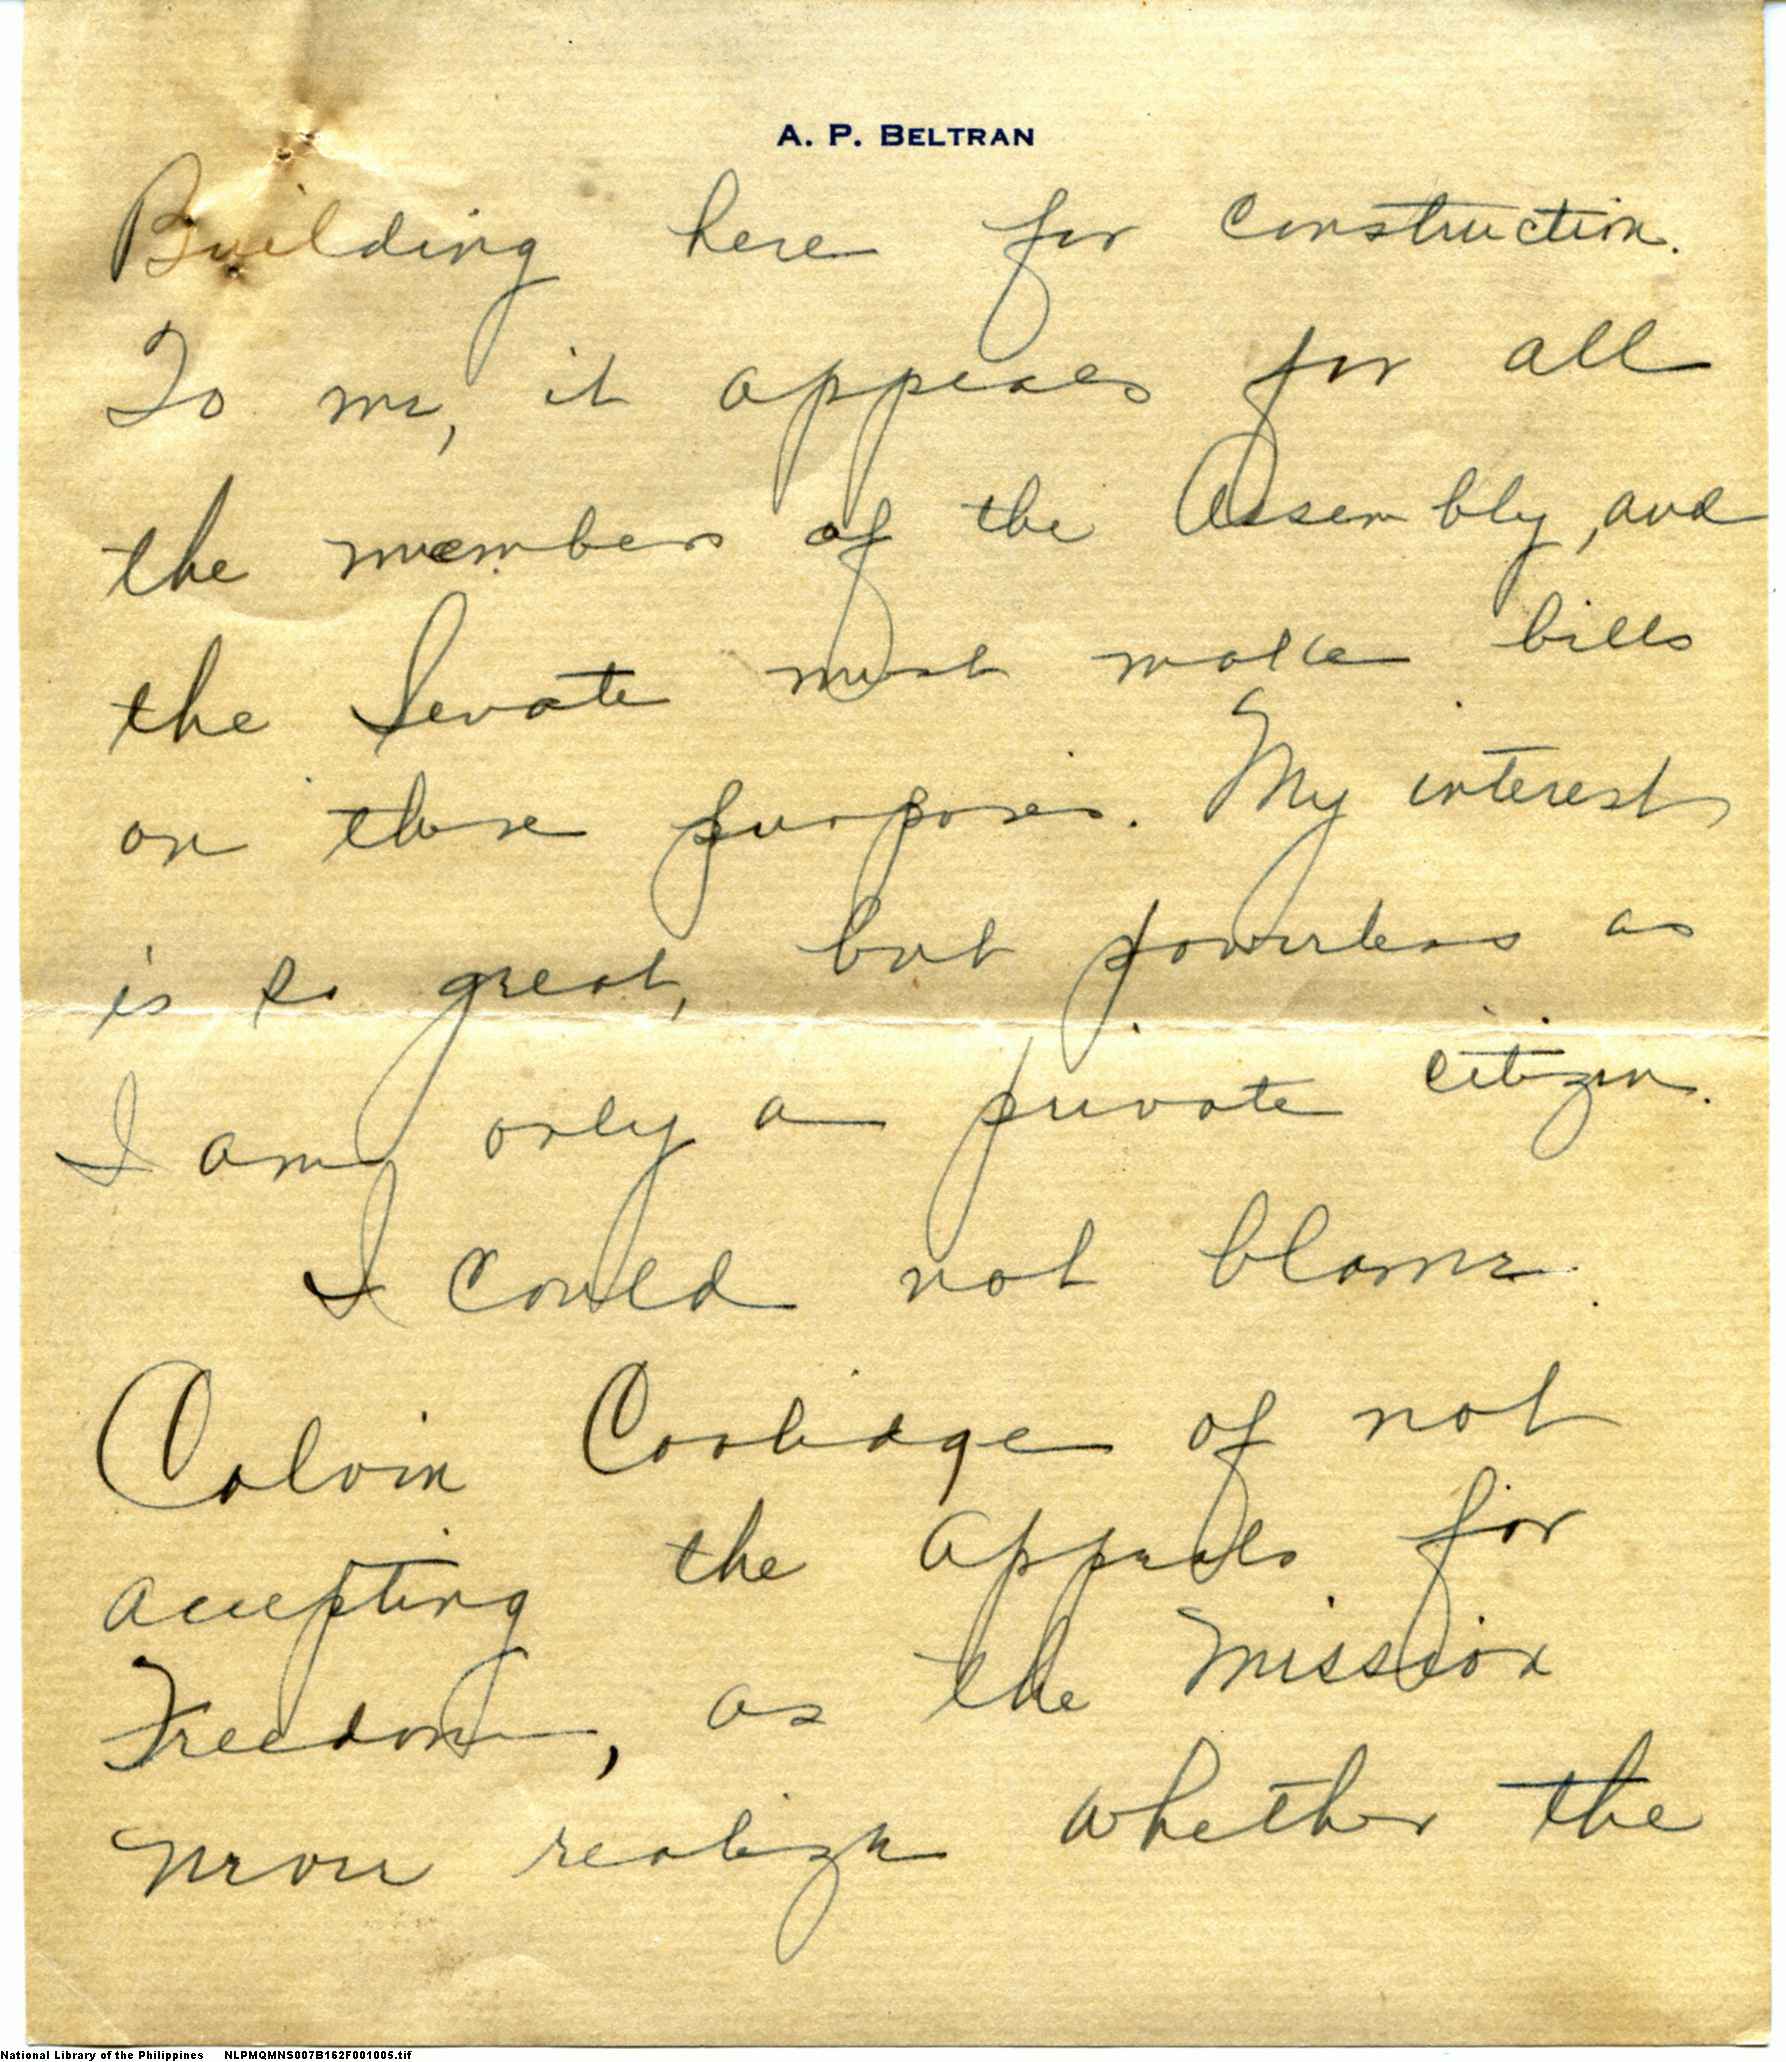 A. P. BELTRAN
Building here for construction.
To me, it appeals for all
the members of the Assembly, and
the Senate must make bills
on these purposes. My interest
is so great, but powerless as
I am only a private citizen.
I could not blame
Calvin Coolidge of not
accepting the appeals for
Freedom, as the Mission
never realize whether the
National Library of the Philippines NLPMQMNS007B162F001005.tif